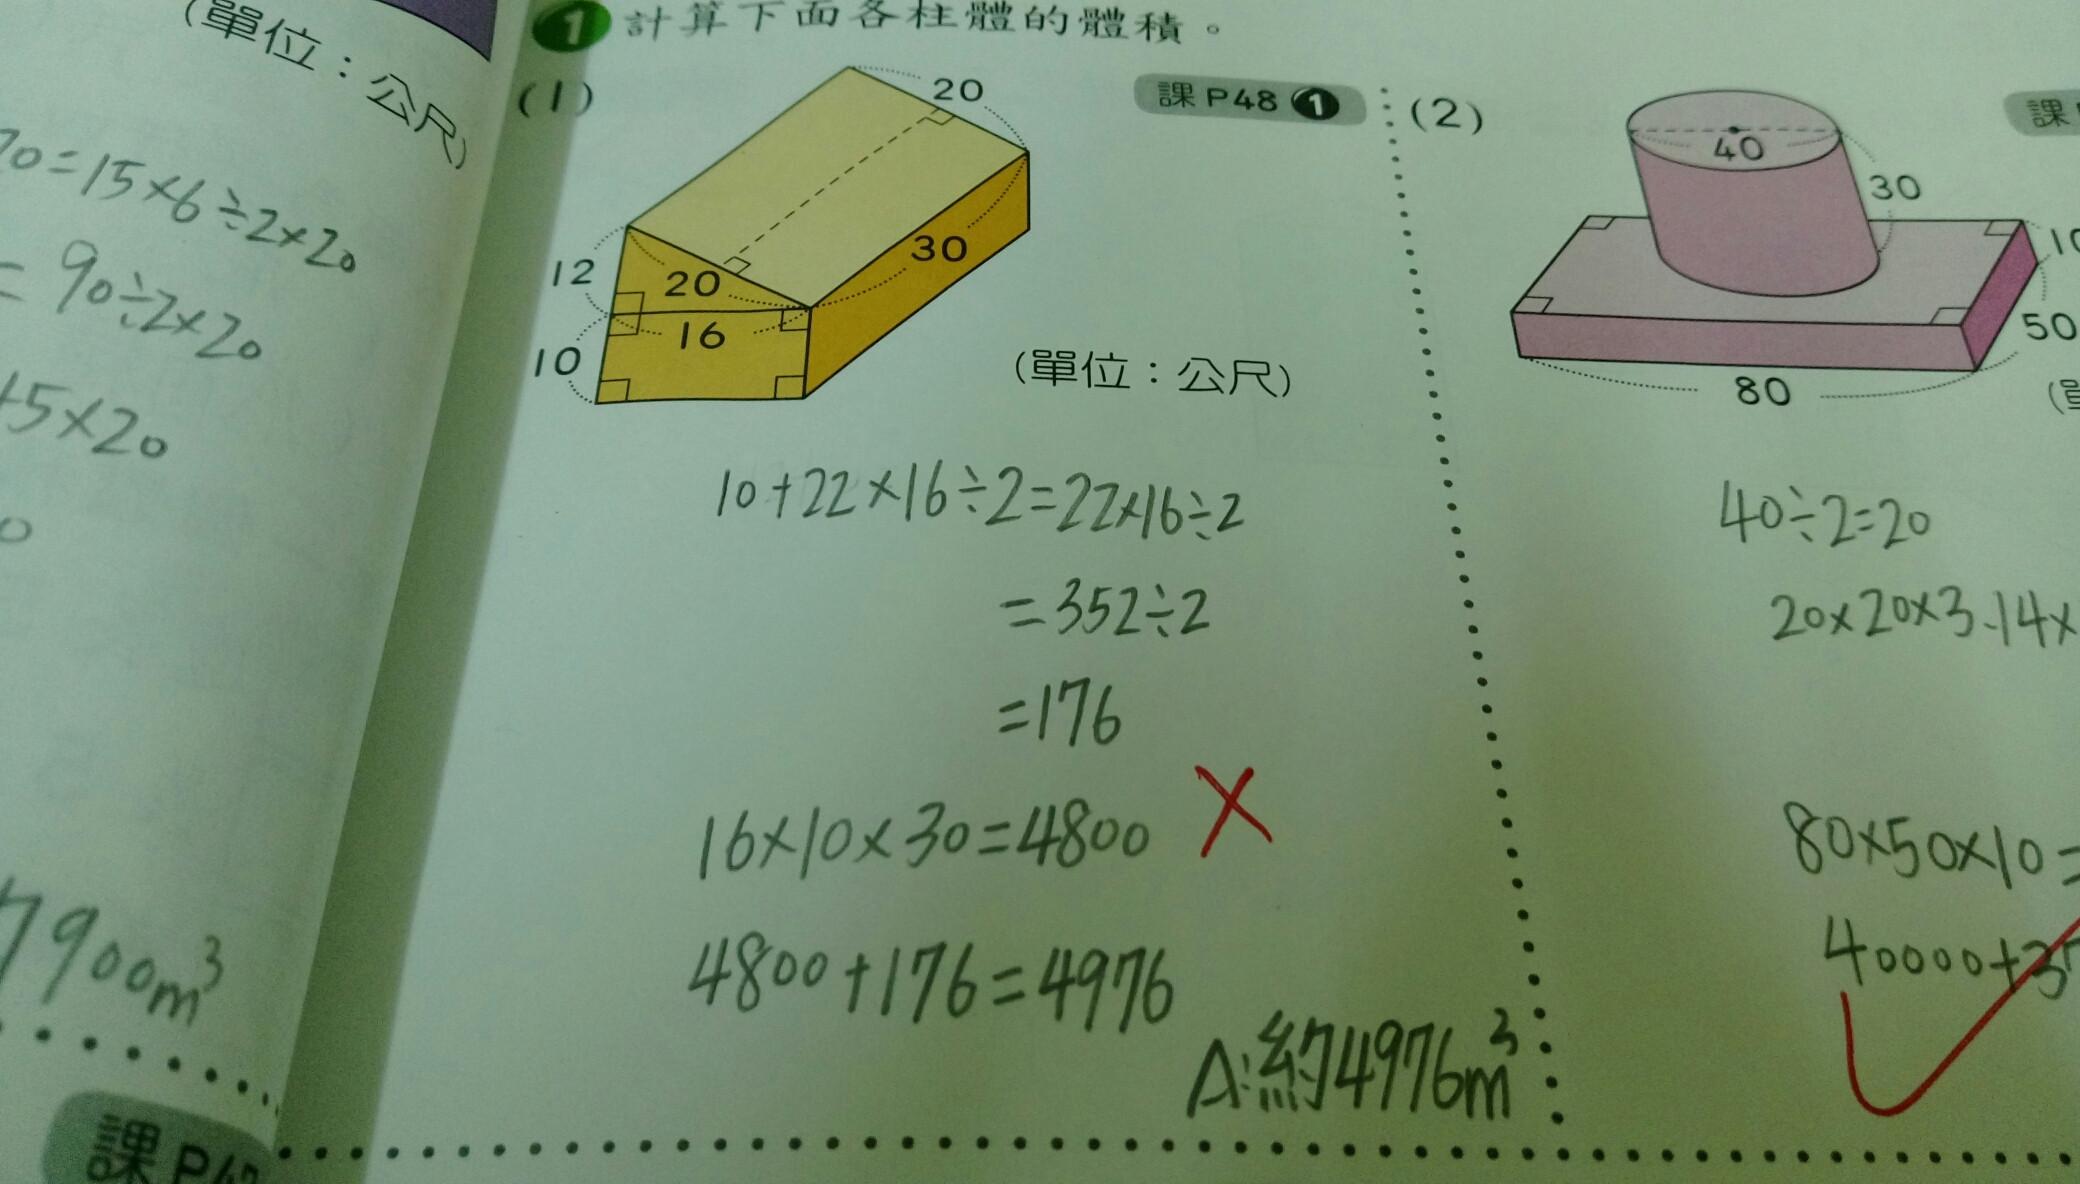 (單位：公尺)
70=15×6÷2×20
=90÷2×20
15×20
0
7900m³
課 P47
1 計算下面各柱體的體積。
(1)
課 P48 1
20
12
20
30
16
10
(單位：公尺)
10+22×16÷2=22×16÷2
=352÷2
=176
16×10×30=4800
4800+176=4976
A:約4976m³
(2)
課
40
30
10
50
80
(單
40÷2=20
20×20×3.14×
80×50×10=
40000+3